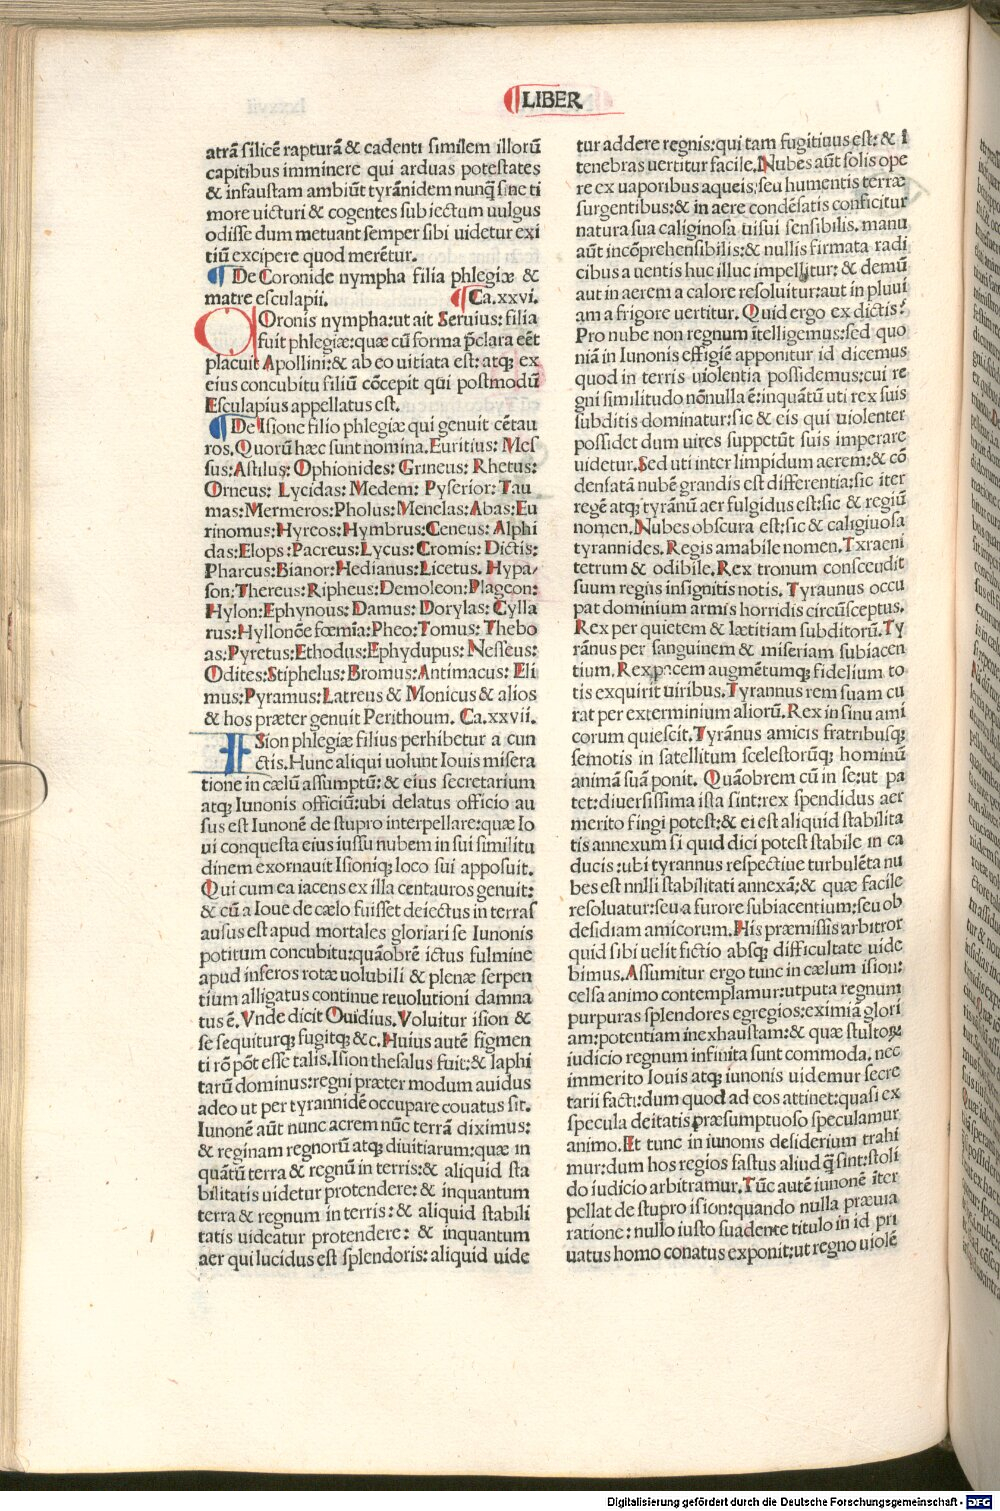 LIBER
atrā silicē rapturā & cadenti similem illorū
capitibus imminere qui arduas potestates
& infaustam ambiūt tyrānidem nunq̄ sine ti
more uicturi & cogentes subiectum uulgus
odisse dum metuant semper sibi uidetur exi
tiū excipere quod merētur.
¶ De Coronide nympha filia phlegiæ &
matre esculapii. ¶ Ca.xxvi.
COronis nympha:ut ait Seruius: filia
fuit phlegiæ:quæ cū forma p̄clara eēt
placuit Apollini:& ab eo uitiata est: atq; ex
eius concubitu filiū cōcepit qui postmodū
Esculapius appellatus est.
¶ De Isione filio phlegiæ qui genuit cētau
ros. Quorū hæc sunt nomina. Euritius: Mes
sus:Astilus: Ophionides: Grineus: Rhetus:
Orneus: Lycidas: Medem: Pyserior: Tau
mas:Mermeros:Pholus:Menelas:Abas:Eu
rinomus:Hyreos:Hymbrus:Ceneus: Alphi
das:Elops:Pacreus:Lycus: Cromis: Dictis:
Pharcus:Bianor:Hedianus:Licetus. Hypa/
son:Thereus:Ripheus:Demoleon:Plageon:
Hylon:Ephynous: Damus: Dorylas: Cylla
rus:Hyllonōe fœmīa:Pheo:Tomus: Thebo
as:Pyretus:Ethodus:Ephydupus: Nesseus:
Odites:Stiphelus:Bromus:Antimacus: Eli
mus:Pyramus:Latreus & Monicus & alios
& hos præter genuit Perithoum. Ca.xxvii.
ISion phlegiæ filius perhibetur a cun
ctis. Hunc aliqui uolunt Iouis misera
tione in cælū assumptū: & eius secretarium
atq; Iunonis officiū:ubi delatus officio au
sus est Iunonē de stupro interpellare:quæ Io
ui conquesta eius iussu nubem in sui similitu
dinem exornauit Isioniq; loco sui apposuit.
Qui cum ea iacens ex illa centauros genuit:
& cū a Ioue de cælo fuisset deiectus in terras
ausus est apud mortales gloriari se Iunonis
potitum concubitu:quāobrē ictus fulmine
apud inferos rotæ uolubili & plenæ serpen
tium alligatus continue reuolutioni damna
tus ē. Vnde dicit Ouidius. Voluitur ision &
se sequiturq; fugitq; &c. Huius autē figmen
ti rō pōt esse talis. Ision thesalus fuit:& laphi
tarū dominus:regni præter modum auidus
adeo ut per tyrannidē occupare couatus sit.
Iunonē aūt nunc aerem nūc terrā diximus:
& reginam regnorū atq; diuitiarum:quæ in
quātū terra & regnū in terris:& aliquid sta
bilitatis uidetur protendere: & inquantum
terra & regnum in terris: & aliquid stabili
tatis uideatur protendere: & inquantum
aer qui lucidus est splendoris: aliquid uide
tur addere regnis:qui tam fugitiuus est: & ī
tenebras uertitur facile. Nubes aūt solis ope
re ex uaporibus aqueis:seu humentis terræ
surgentibus:& in aere condēsatis conficitur
natura sua caliginosa uisui sensibilis. manu
aūt incōprehensibilis:& nullis firmata radi
cibus a uentis huc illuc impellitur: & demū
aut in aerem a calore resoluitur:aut in pluui
am a frigore uertitur. Quid ergo ex dictis?
Pro nube non regnum ītelligemus:sed quo
niā in Iunonis effigiē apponitur id dicemus
quod in terris uiolentia possidemus:cui re
gni similitudo nōnulla ē:inquātū uti rex suis
subditis dominatur:sic & eis qui uiolenter
possidet dum uires suppetūt suis imperare
uidetur. Sed uti inter limpidum aerem:& cō
densatā nubē grandis est differentia:sic iter
regē atq; tyrānū aer fulgidus est:sic & regiū
nomen. Nubes obscura est:sic & caligiuosa
tyrannides. Regis amabile nomen. Txraeni
tetrum & odibile. Rex tronum conscendit
suum regiis insignitis notis. Tyraunus occu
pat dominium armis horridis circūsceptus.
Rex per quietem & lætitiam subditorū. Ty
rānus per sanguinem & miseriam subiacen
tium. Rex pacem augmētumq; fidelium to
tis exquirit uiribus. Tyrannus rem suam cu
rat per exterminium aliorū. Rex in sinu ami
corum quiescit. Tyrānus amicis fratribusq;
semotis in satellitum scelestorūq; hominū
animā suā ponit. Quāobrem cū in se:ut pa
tet:diuersissima ista sint:rex spendidus aer
merito fingi potest:& ei est aliquid stabilita
tis annexum si quid dici potest stabile in ca
ducis:ubi tyrannus respectiue turbulēta nu
bes est nnlli stabilitati annexā:& quæ facile
resoluatur:seu a furore subiacentium:seu ob
desidiam amicorum. His præmissis arbitror
quid sibi uelit fictio absq; difficultate uide
bimus. Assumitur ergo tunc in cælum ision:
celsa animo contemplamur:utputa regnum
purpuras splendores egregios:eximiā glori
am:potentiam inexhaustam:& quæ stultoꝝ
iudicio regnum infinita sunt commoda. nec
immerito Iouis atq; iunonis uidemur secre
tarii facti:dum quod ad eos attinet:quasi ex
specula deitatis præsumptuoso speculamur
animo. Et tunc in iunonis desiderium trahi
mur:dum hos regios fastus aliud q̄ sint:stoli
do iudicio arbitramur. Tūc autē iunonē īter
pellat de stupro ision:quando nulla præuia
ratione: nullo iusto suadente titulo in id pri
uatus homo conatus exponit:ut regno uiolē
Digitalisierung gefördert durch die Deutsche Forschungsgemeinschaft - DFG